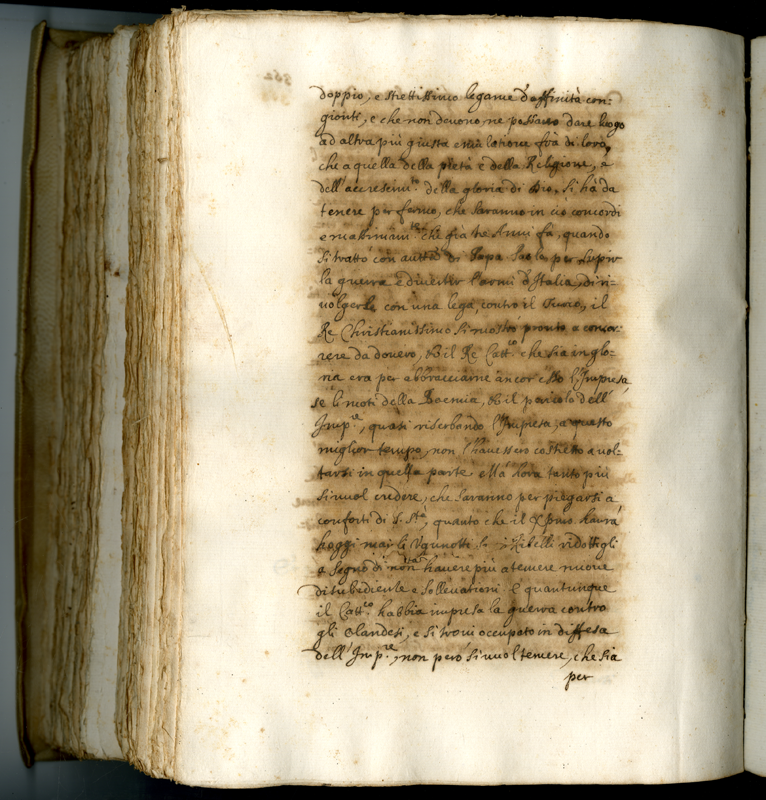 doppio, e strettissimo legame d'affinità con:
gionti, e che non devono, ne possano dare luogo
ad altra più giusta emulatione frà di loro,
che a quella della pietà e della Religione, e
dell'accrescim.to della gloria di Dio. Si hà da
tenere per fermo, che saranno in ciò concordi
e che frà tre Anni fà, quando
si trattò con autt.à di Papa Paolo per supir
la guerra e divertir l'armi d'Italia, di ri:
volgerle con una lega, contro il Turco, il
Re Christianissimo si mostrò pronto a concor:
rere da dovero, et il Re Catt.co che sia in glo:
ria era per abbracciarne ancor esso l'Impresa,
se li moti della Boemia, et il pericolo dell'
Imp.re, quasi riserbando l'Impresa, a questo
miglior tempo, non l'havessero costretto a vol:
tarsi in quella parte. Mà hora tanto più
si vuol credere, che saranno per piegarsi a
conforti di S. S.tà, quanto che il Xpmo havrà
hoggi mai li Ugunotti suoi Ribelli ridottigli
a segno di non havere più a temere nuove
disubediente e sollevationi. E quantunque
il Catt.co habbia impresa la guerra contro
gli Olandesi, e si trovi occupato in diffesa
dell'Imp.re, non però si vuol temere, che sia
per